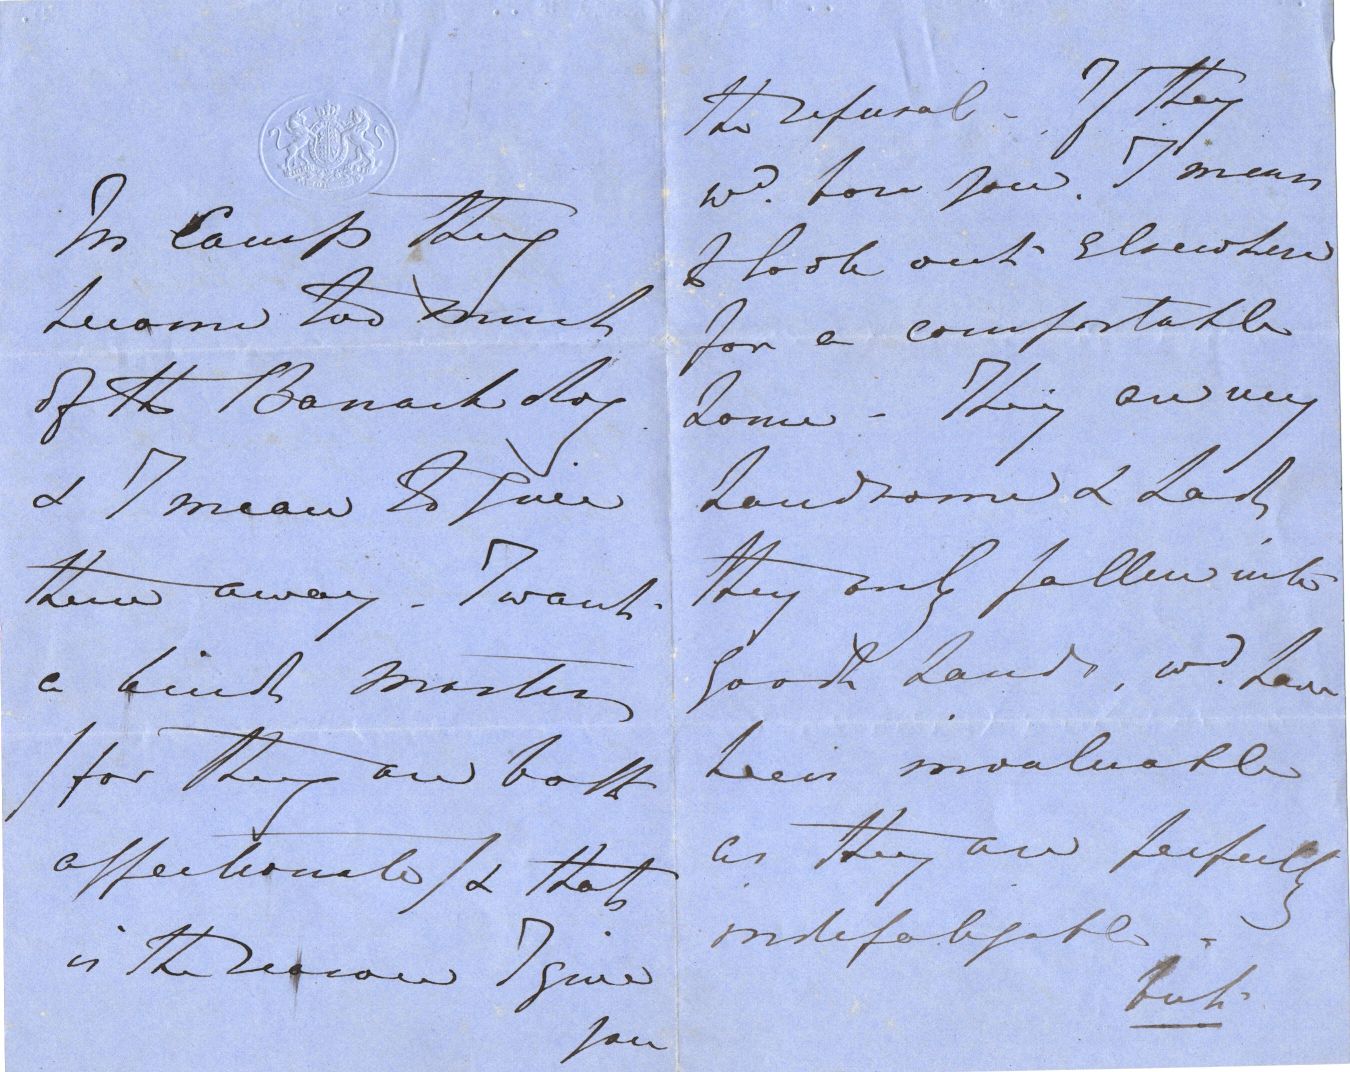 In Camp they
become too much
of the Barrack dog
& I mean to give
them away - I want
a kind master
/for they are both
affectionate/ & that
is the reason I give
you
the refusal - If they
wd. bore you, I mean
to look out elsewhere
for a comfortable
home - They are very
handsome & had
they only fallen into
good hands, wd. have
been invaluable
as they are perfectly
indefatigable -
but